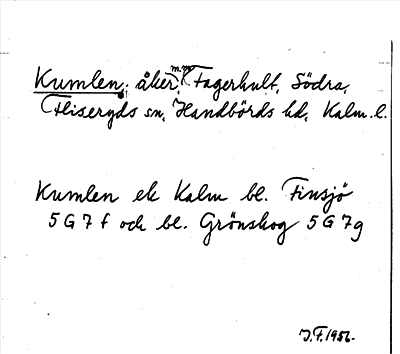 Kumlen, åker, m.m. Fagerhult, Södra,
Fliseryds sn, Handbörds hd, Kalm. l.
Kumlen ek Kalm bl. Finsjö
5 G 7 f och bl. Grönskog 5 G 7 g
J.F. 1956.